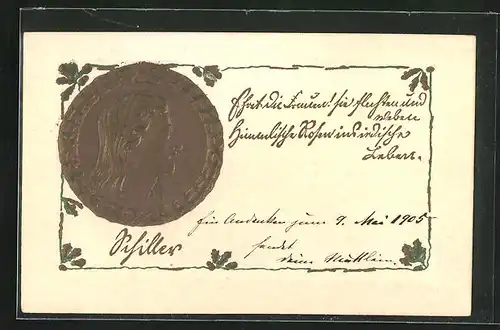 Ehret die Frauen! sie flechten und
weben
Himmlische Rosen ins irdische
Leben.
Schiller
Ein Andenken zum 9. Mai 1905
sendet
deine